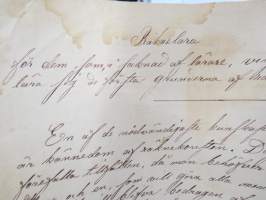 Räknelära
för dem, som, i saknad af lärare, vilja
lära sig de första grunderna af
En af de nödvändigaste kunskaper
är kännedom af räknekonsten. D
förefalla tillfällen, då man behöfver
och en, som vill göra
bedragen af